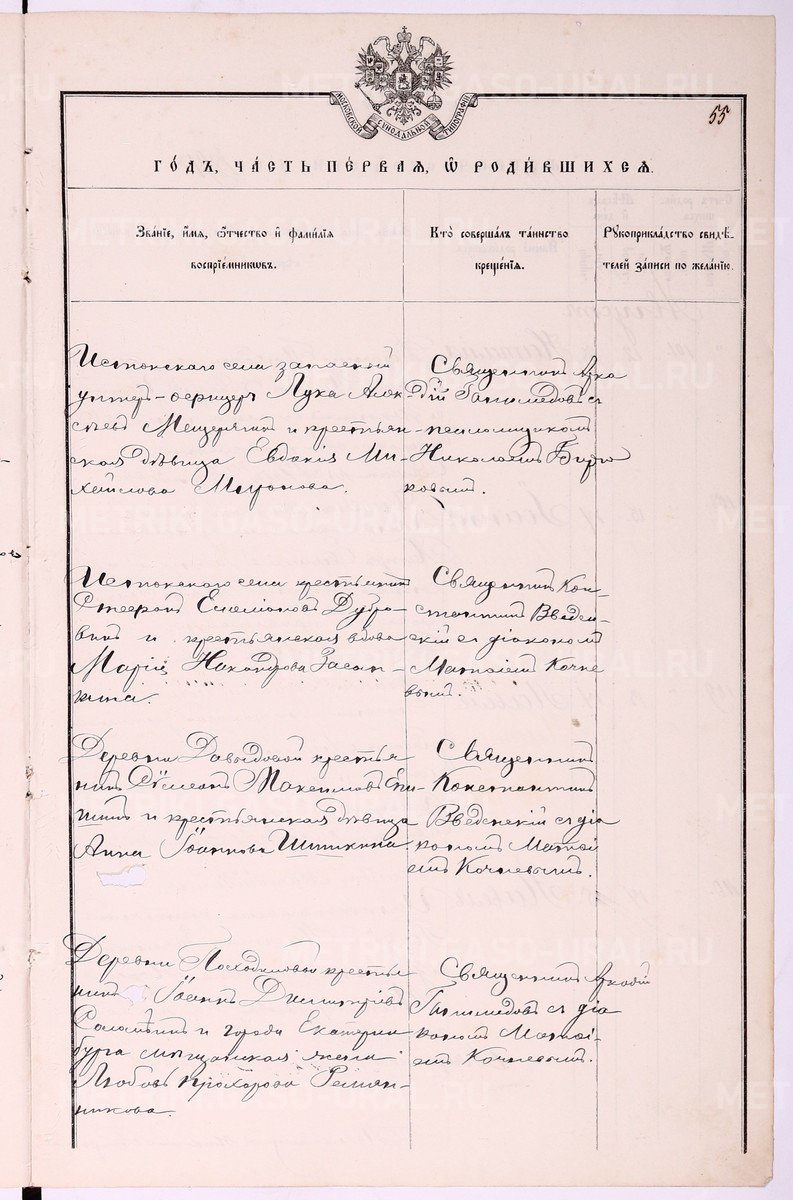 55
МОСКОВСКОЙ СѴНОДАЛЬНОЙ ТИПОГРАФІИ
ГОДЪ, ЧАСТЬ ПЕРВАЯ, Ѡ РОДИВШИХСЯ.
Званіе, имя, отчество и фамилія
воспріемниковъ.
Кто совершалъ таинство
крещенія.
Рукоприкладство свидѣ-
телей записи по желанію.
Истокскаго села запасный
унтеръ-офицеръ Лука Алек-
сѣевъ Мещерягинъ и крестьян-
ская дѣвица Евдокія Ми-
хайлова Миронова.
Священникъ Арка
дій Ганимедовъ съ
псаломщикомъ
Николаемъ Бирю
ковымъ.
Истокскаго села крестьянинъ
Стефанъ Дубро-
винъ и крестьянская вдова
Марія Никандрова
Священникъ Кон-
стантинъ Введен-
скій съ діакономъ
Матѳіемъ Кочне
вымъ.
Деревни Давыдовой крестья
нинъ Сѵмеонъ Максимовъ Ши-
и крестьянская дѣвица
Анна Іоаннова Шишкина.
Священникъ
Константинъ
Введенскій съ діа
кономъ Матѳі
емъ Кочневымъ.
Деревни крестья
нинъ Іоаннъ Димитріевъ
Саламѣинъ и города Екатерин
бурга мѣщанская жена
Любовь Прохорова Ремян-
никова.
Священникъ Аркадій
Ганимедовъ съ діа
кономъ Матѳі-
емъ Кочневымъ.
METRIKI.GASO-URAL.RU